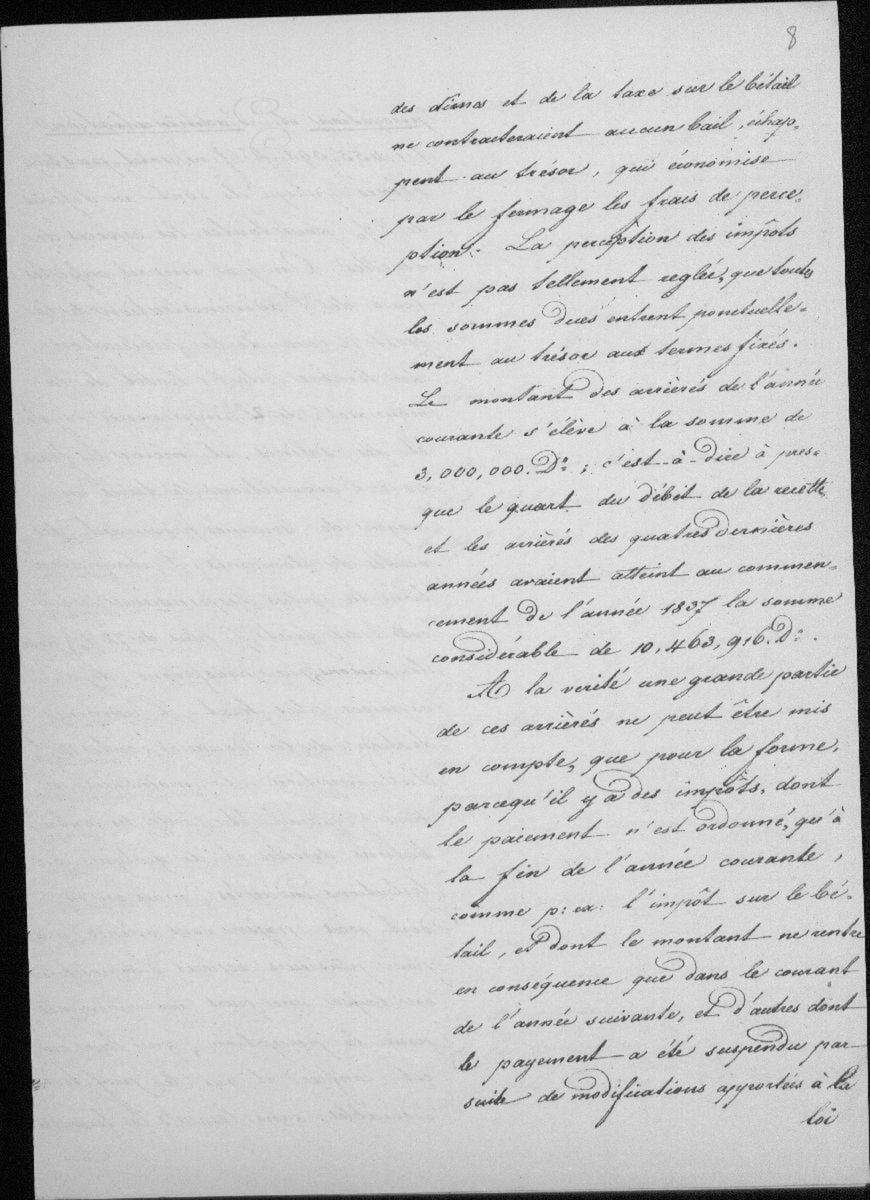 8
des dîmes et de la taxe sur le bétail
ne contracteraient aucun bail, échap-
pent au trésor, qui économise
par le fermage les frais de perce-
ption. La perception des impôts
n'est pas tellement reglée, que toutes
les sommes dues entrent ponctuelle-
ment au trésor aux termes fixés.
Le montant des arriérés de l'année
courante s'élève à la somme de
3,000,000. Dr.; c'est-à-dire à pres-
que le quart du débit de la recette
et les arriérés des quatres dernières
années avaient atteint au commen-
cement de l'année 1837 la somme
considérable de 10,463,916. Dr.
A la vérité une grande partie
de ces arriérés ne peut être mis
en compte, que pour la forme,
parcequ'il y a des impôts, dont
le paiement n'est ordonné, qu'à
la fin de l'année courante,
comme p: ex: l'impôt sur le bé-
tail, et dont le montant ne rentre
en conséquence que dans le courant
de l'année suivante, et d'autres dont
le payement a été suspendu par
suite de modifications apportées à la
loi